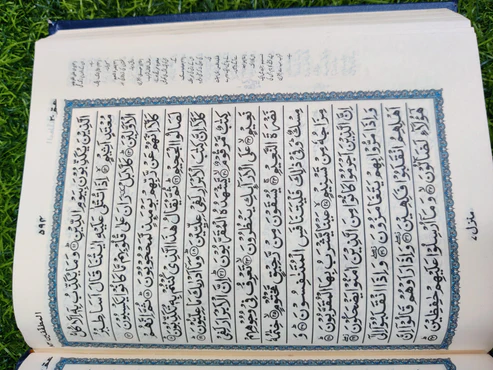 عم ٣٠
٥٩٣
المطففين
الَّذِيْنَ يُكَذِّبُوْنَ بِيَوْمِ الدِّيْنِ ۝ وَمَا يُكَذِّبُ بِهٖۤ اِلَّا كُلُّ
مُعْتَدٍ اَثِيْمٍ ۝ اِذَا تُتْلٰى عَلَيْهِ اٰيٰتُنَا قَالَ اَسَاطِيْرُ
الْاَوَّلِيْنَ ۝ كَلَّا بَلْ رَانَ عَلٰى قُلُوْبِهِمْ مَّا كَانُوْا يَكْسِبُوْنَ ۝
كَلَّاۤ اِنَّهُمْ عَنْ رَّبِّهِمْ يَوْمَئِذٍ لَّمَحْجُوْبُوْنَ ۝ ثُمَّ اِنَّهُمْ
لَصَالُوا الْجَحِيْمِ ۝ ثُمَّ يُقَالُ هٰذَا الَّذِيْ كُنْتُمْ بِهٖ تُكَذِّبُوْنَ ۝
كَلَّاۤ اِنَّ كِتٰبَ الْاَبْرَارِ لَفِيْ عِلِّيِّيْنَ ۝ وَمَاۤ اَدْرٰىكَ مَا عِلِّيُّوْنَ ۝
كِتٰبٌ مَّرْقُوْمٌ ۝ يَّشْهَدُهُ الْمُقَرَّبُوْنَ ۝ اِنَّ الْاَبْرَارَ لَفِيْ
نَعِيْمٍ ۝ عَلَى الْاَرَآئِكِ يَنْظُرُوْنَ ۝ تَعْرِفُ فِيْ وُجُوْهِهِمْ
نَضْرَةَ النَّعِيْمِ ۝ يُسْقَوْنَ مِنْ رَّحِيْقٍ مَّخْتُوْمٍ ۝ خِتٰمُهٗ
مِسْكٌ وَفِيْ ذٰلِكَ فَلْيَتَنَافَسِ الْمُتَنَافِسُوْنَ ۝ وَ
مِزَاجُهٗ مِنْ تَسْنِيْمٍ ۝ عَيْنًا يَّشْرَبُ بِهَا الْمُقَرَّبُوْنَ ۝
اِنَّ الَّذِيْنَ اَجْرَمُوْا كَانُوْا مِنَ الَّذِيْنَ اٰمَنُوْا يَضْحَكُوْنَ ۝
وَاِذَا مَرُّوْا بِهِمْ يَتَغَامَزُوْنَ ۝ وَاِذَا انْقَلَبُوْۤا اِلٰۤى
اَهْلِهِمُ انْقَلَبُوْا فَكِهِيْنَ ۝ وَاِذَا رَاَوْهُمْ قَالُوْۤا اِنَّ
هٰۤؤُلَآءِ لَضَآلُّوْنَ ۝ وَمَاۤ اُرْسِلُوْا عَلَيْهِمْ حٰفِظِيْنَ ۝
منزل ٧